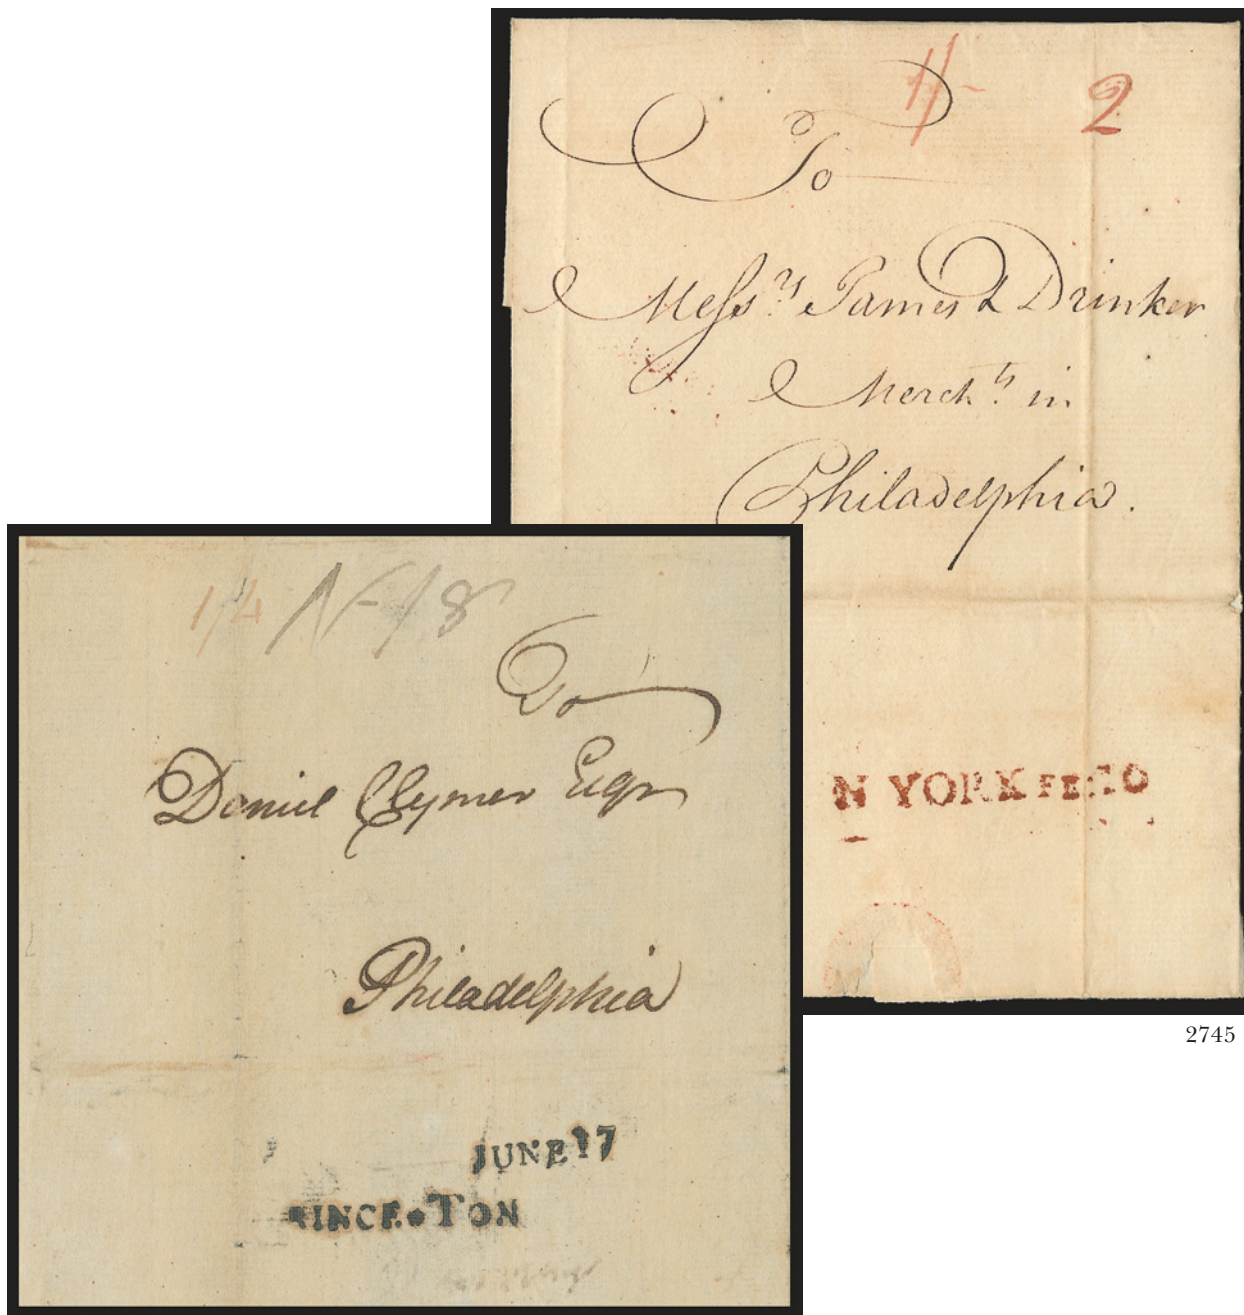 1/- 2
To
Messrs. James & Drinker
Mercht.s in
Philadelphia.
N YORK FE:20
2745
1/4 N-/8
To
Daniel Clymer Esqr
Philadelphia
JUNE 17
RINCE•TON